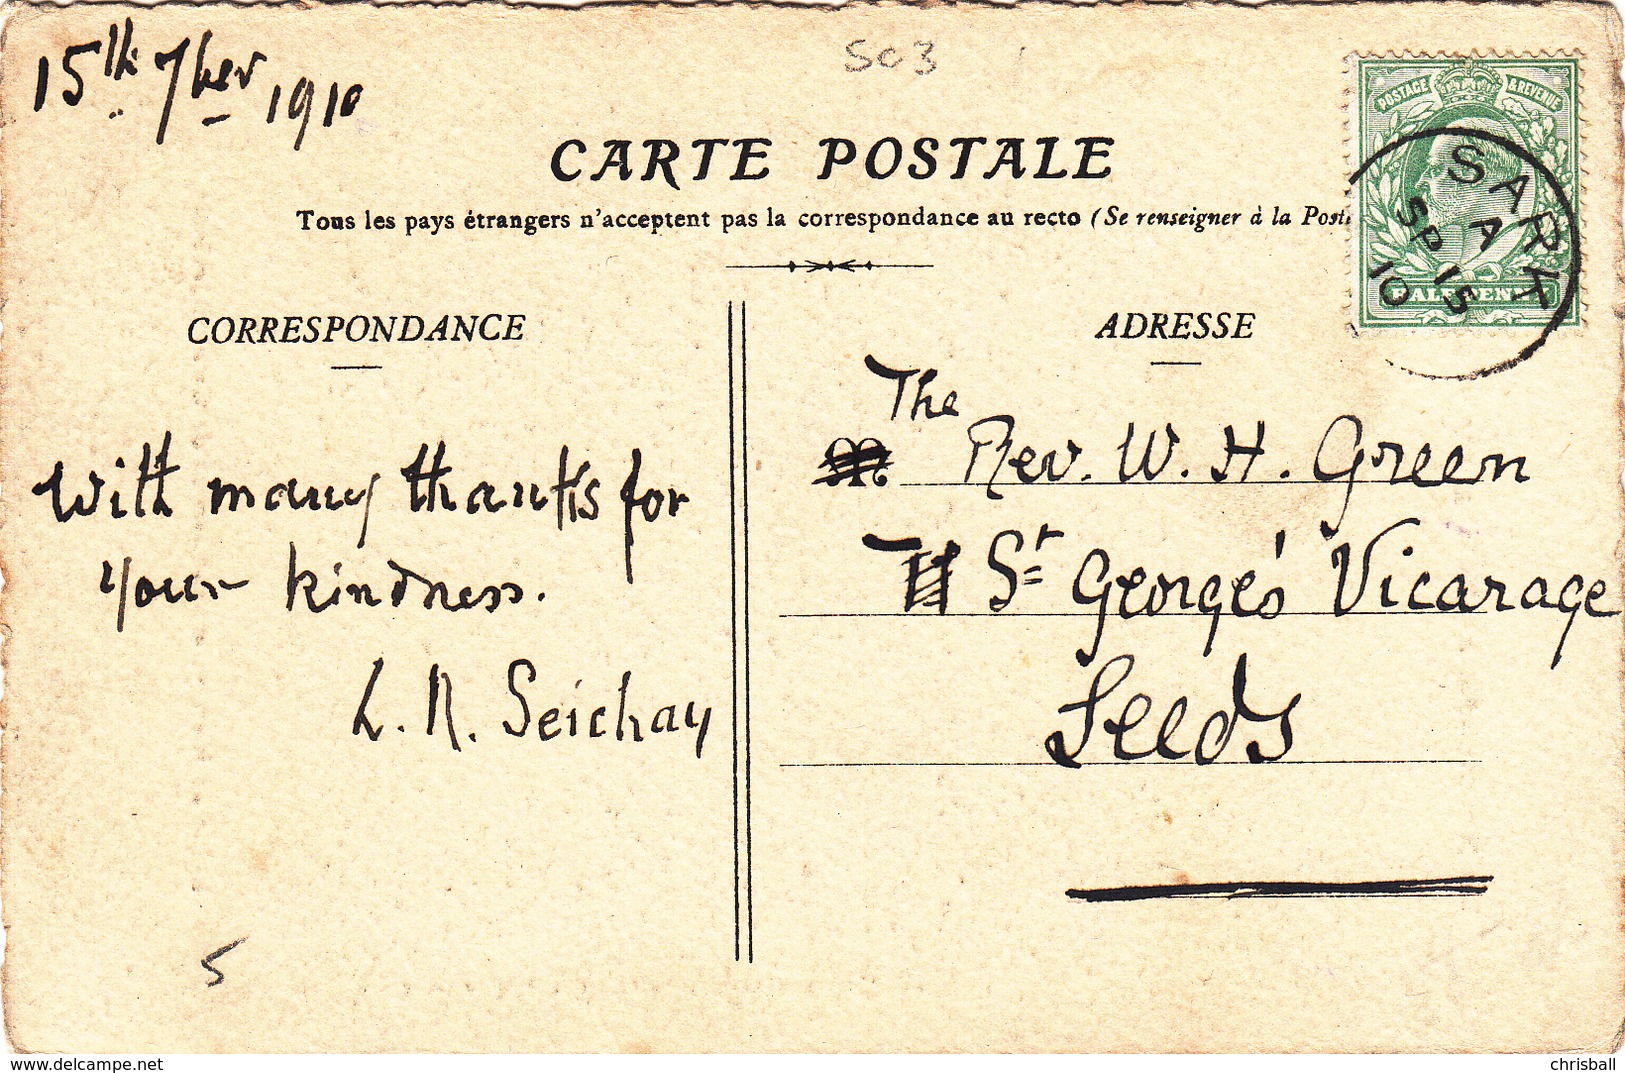 15th 7ber 1910
SC3
CARTE POSTALE
Tous les pays étrangers n'acceptent pas la correspondance au recto (Se renseigner à la Poste
CORRESPONDANCE
ADRESSE
POSTAGE & REVENUE
HALFPENNY
SART
A
SP 15
10
With many thanks for
your kindness.
L. R. Seichay
The
Rev. W. H. Green
St George's Vicarage
Leeds
5
delcampe.net
chrisball